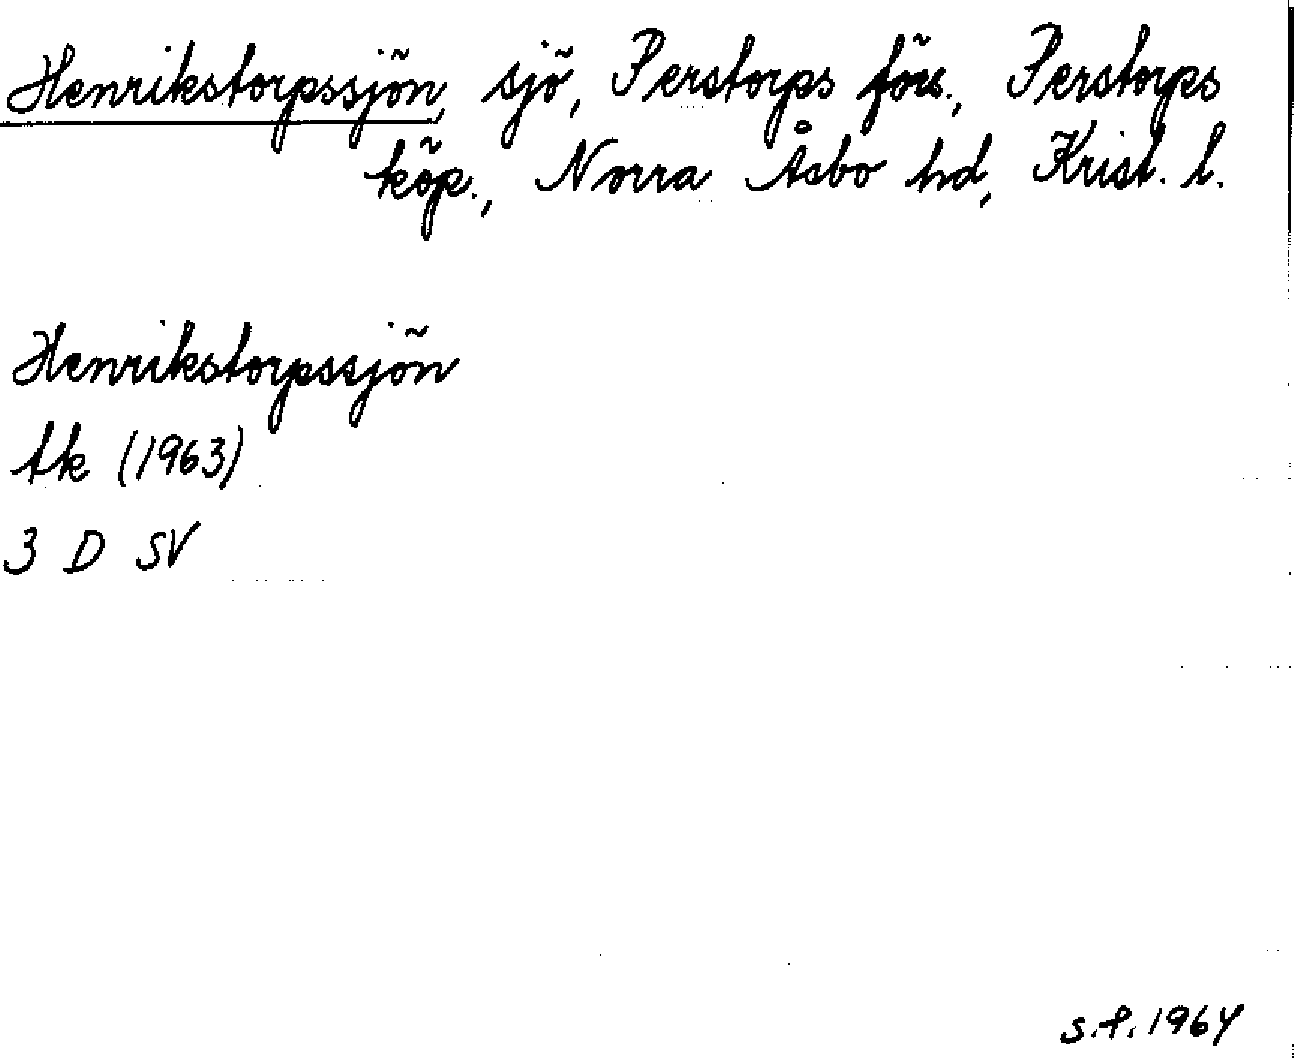 Henrikstorpssjön, sjö, Perstorps förs., Perstorps
köp., Norra Åsbo hd, Krist. l.
Henrikstorpssjön
tk (1963)
3 D SV
s.f. 1964